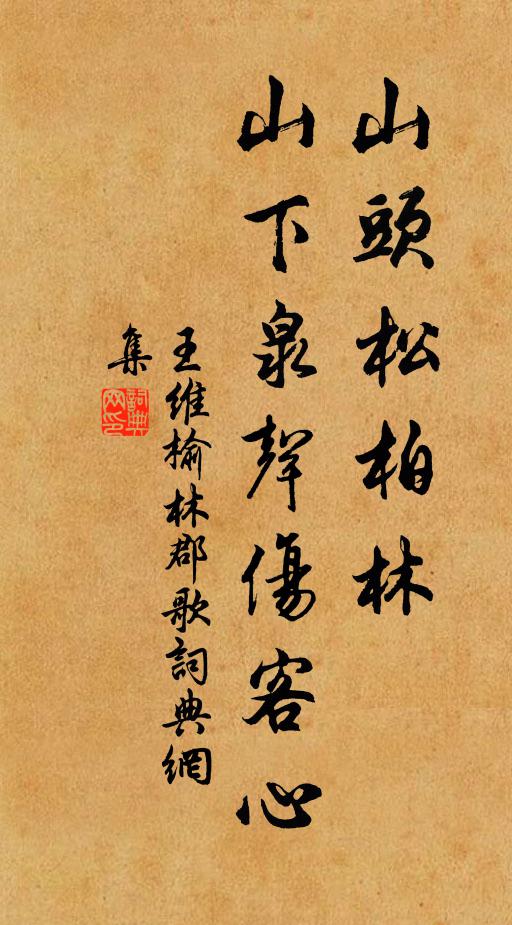 山頭松柏林
山下泉聲傷客心
王維榆林郡歌詞典網
集
詞典網印